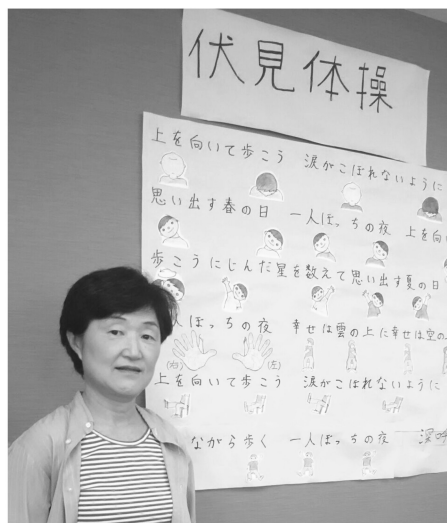 伏見体操
上を向いて歩こう 涙がこぼれないように
思い出す春の日 一人ぼっちの夜 上を向い
歩こうにじんだ星を数えて思い出す夏の日
人ぼっちの夜 幸せは雲の上に幸せは空の
(右) (左)
上を向いて歩こう 涙がこぼれないように
ながら歩く 一人ぼっちの夜 深呼